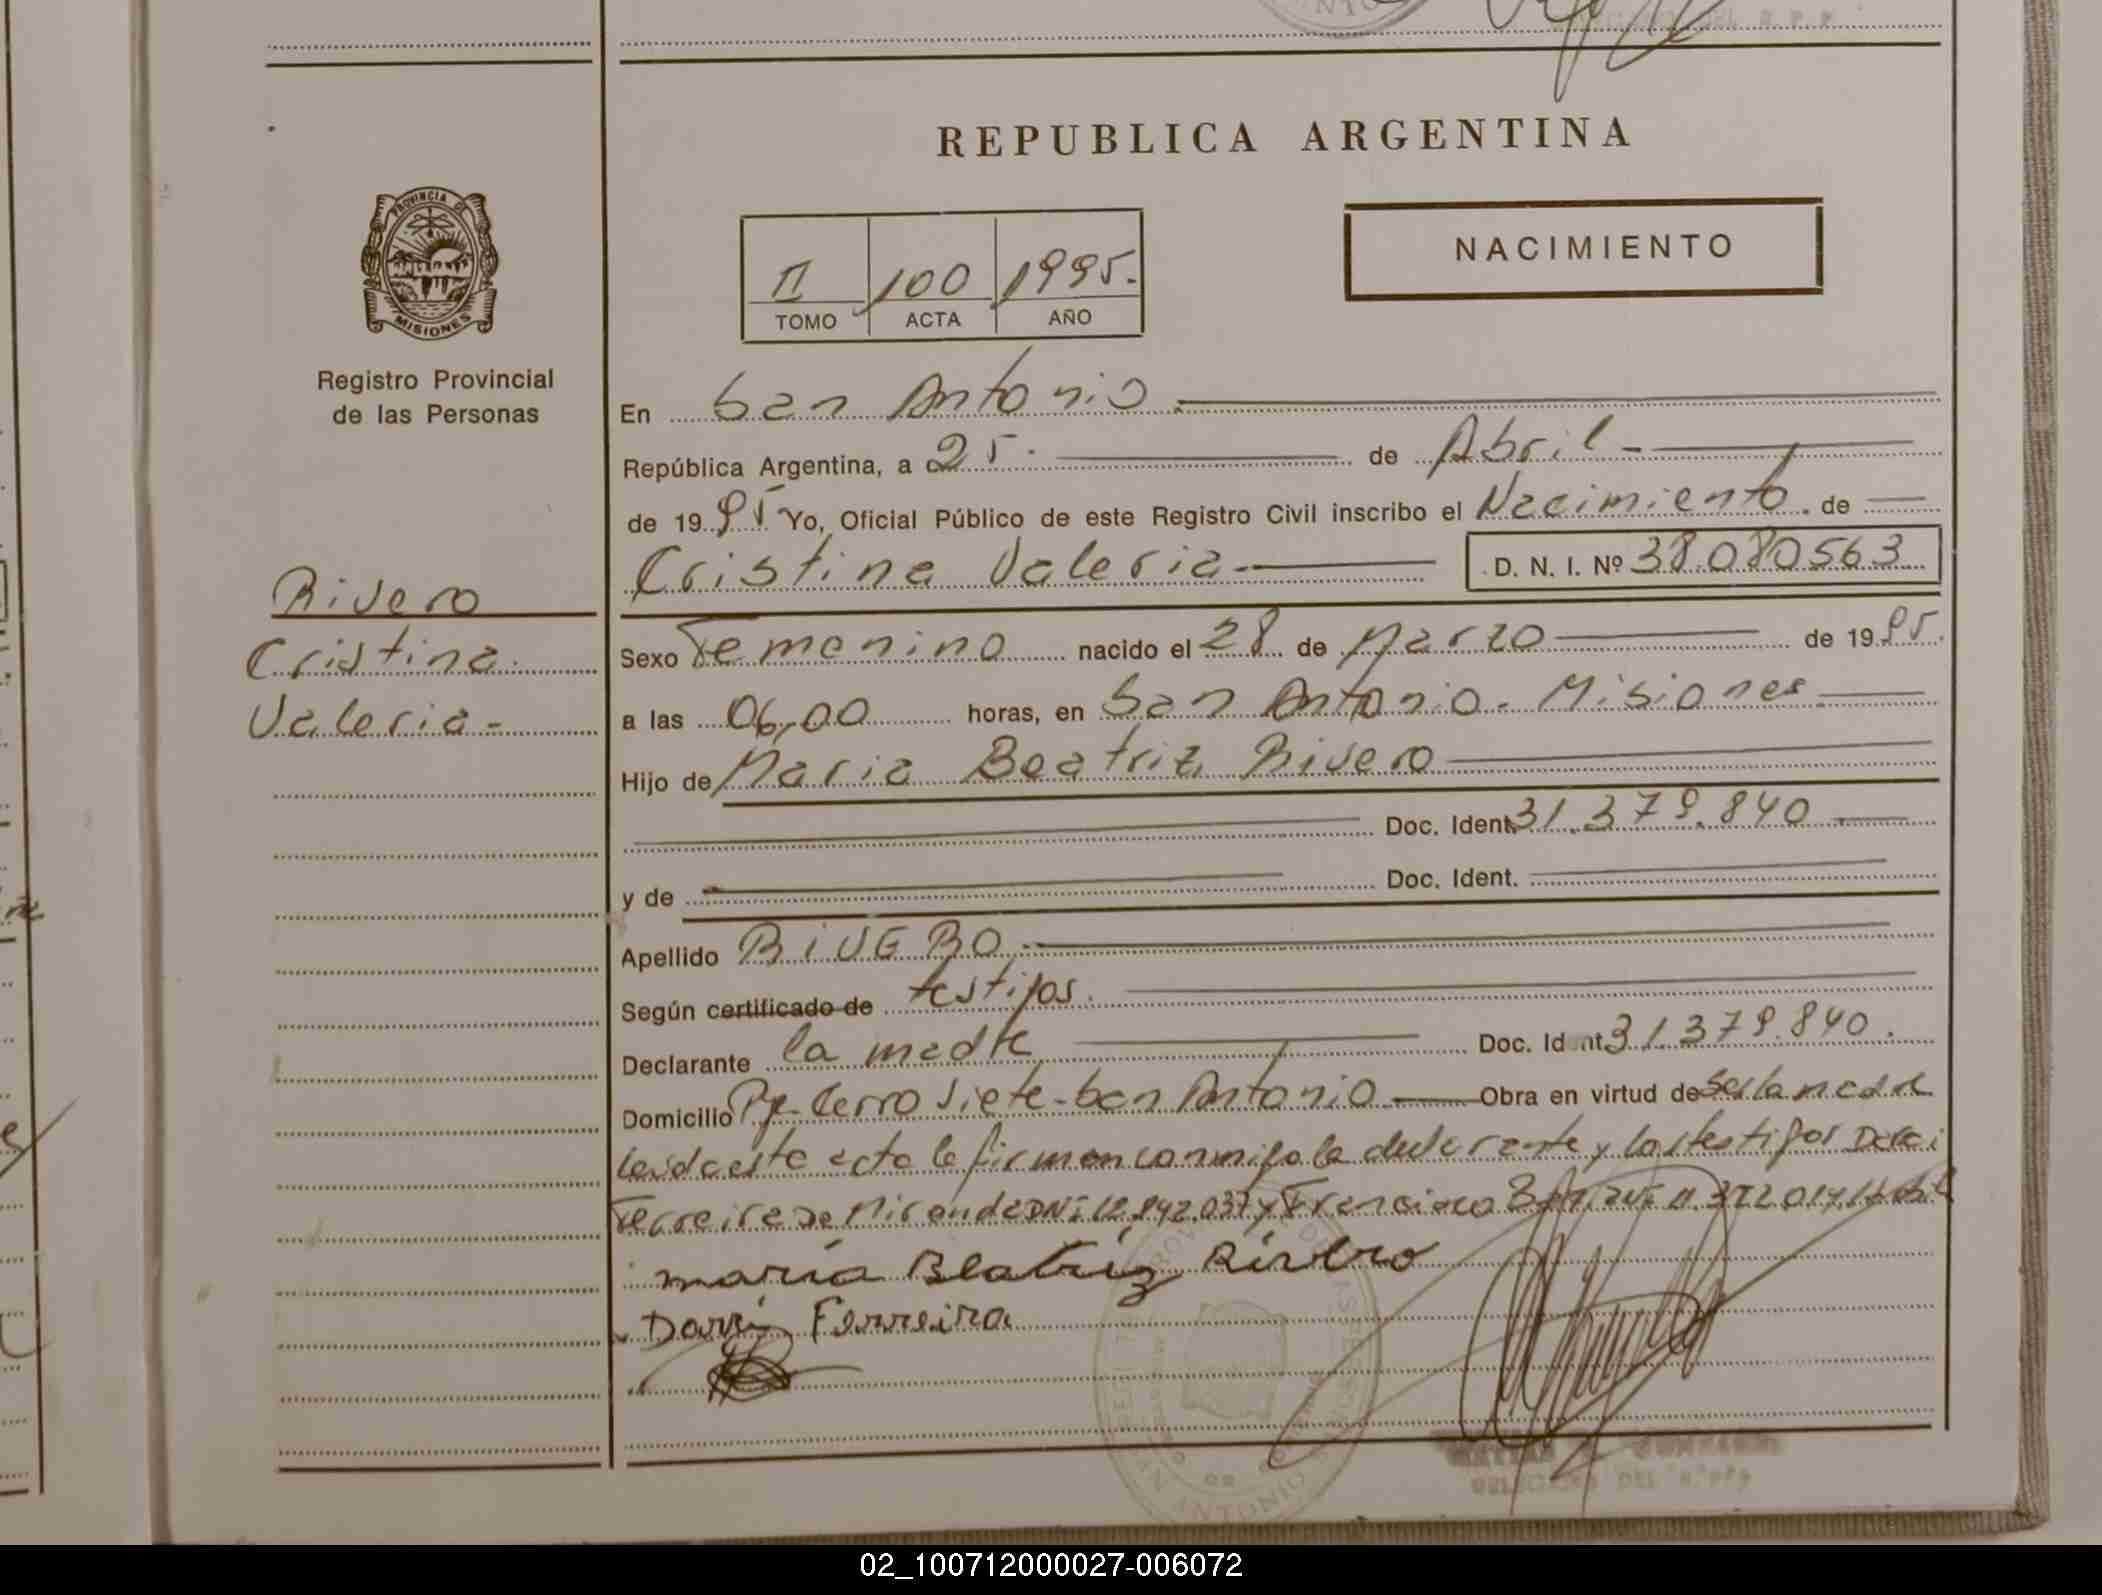 REPUBLICA ARGENTINA
PROVINCIA DE
MISIONES
Registro Provincial
de las Personas
II 100 1995.
TOMO ACTA AÑO
NACIMIENTO
En San Antonio.
República Argentina, a 25. de Abril
de 1995 Yo, Oficial Público de este Registro Civil inscribo el Nacimiento. de
Cristina Valeria D. N. I. Nº 38.080563
Rivero
Cristina
Valeria-
Sexo Femenino nacido el 28 de Marzo de 1995.
a las 06,00 horas, en San Antonio. Misiones
Hijo de Maria Beatriz Rivero
Doc. Ident. 31.379.840
y de Doc. Ident.
Apellido RIVERO
Según certificado de testigos.
Declarante la madre Doc. Ident. 31.379.840.
Domicilio Pje Cerro Siete-San Antonio Obra en virtud de Ser la madre
Leida este acta la firman conmigo la declarante y los testigos Darci
Ferreira De Miranda DNI 12.842.037 y Francisco
maria Beatriz Rivero
Darci Ferreira
SAN ANTONIO
DELEGADO DEL R.P.P
02_100712000027-006072